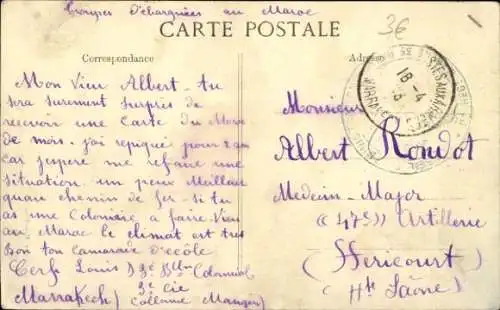 Troupes Débarquées au Maroc
3€
CARTE POSTALE
Correspondance
Adresse
Mon Vieu Albert - tu
sera surement surpris de
recevoir une Carte du Maroc
de mois. j'ai repiqué pour 2 an
car j'espere me refaire une
situation un peux Meilleur
quau chemin de fer. si tu
as une Colonière a faire. Vien
au Maroc le climat est tres
Bon ton Camarade d'ecôle
Cerf Louis 3e Btn Colonial
3e Cie
Marrakech) Colonne Mangin)
Monsieur
Albert Rondot
Medecin-Major
« 47e » Artillerie
(Hericourt)
(Hte Saône)
18-4